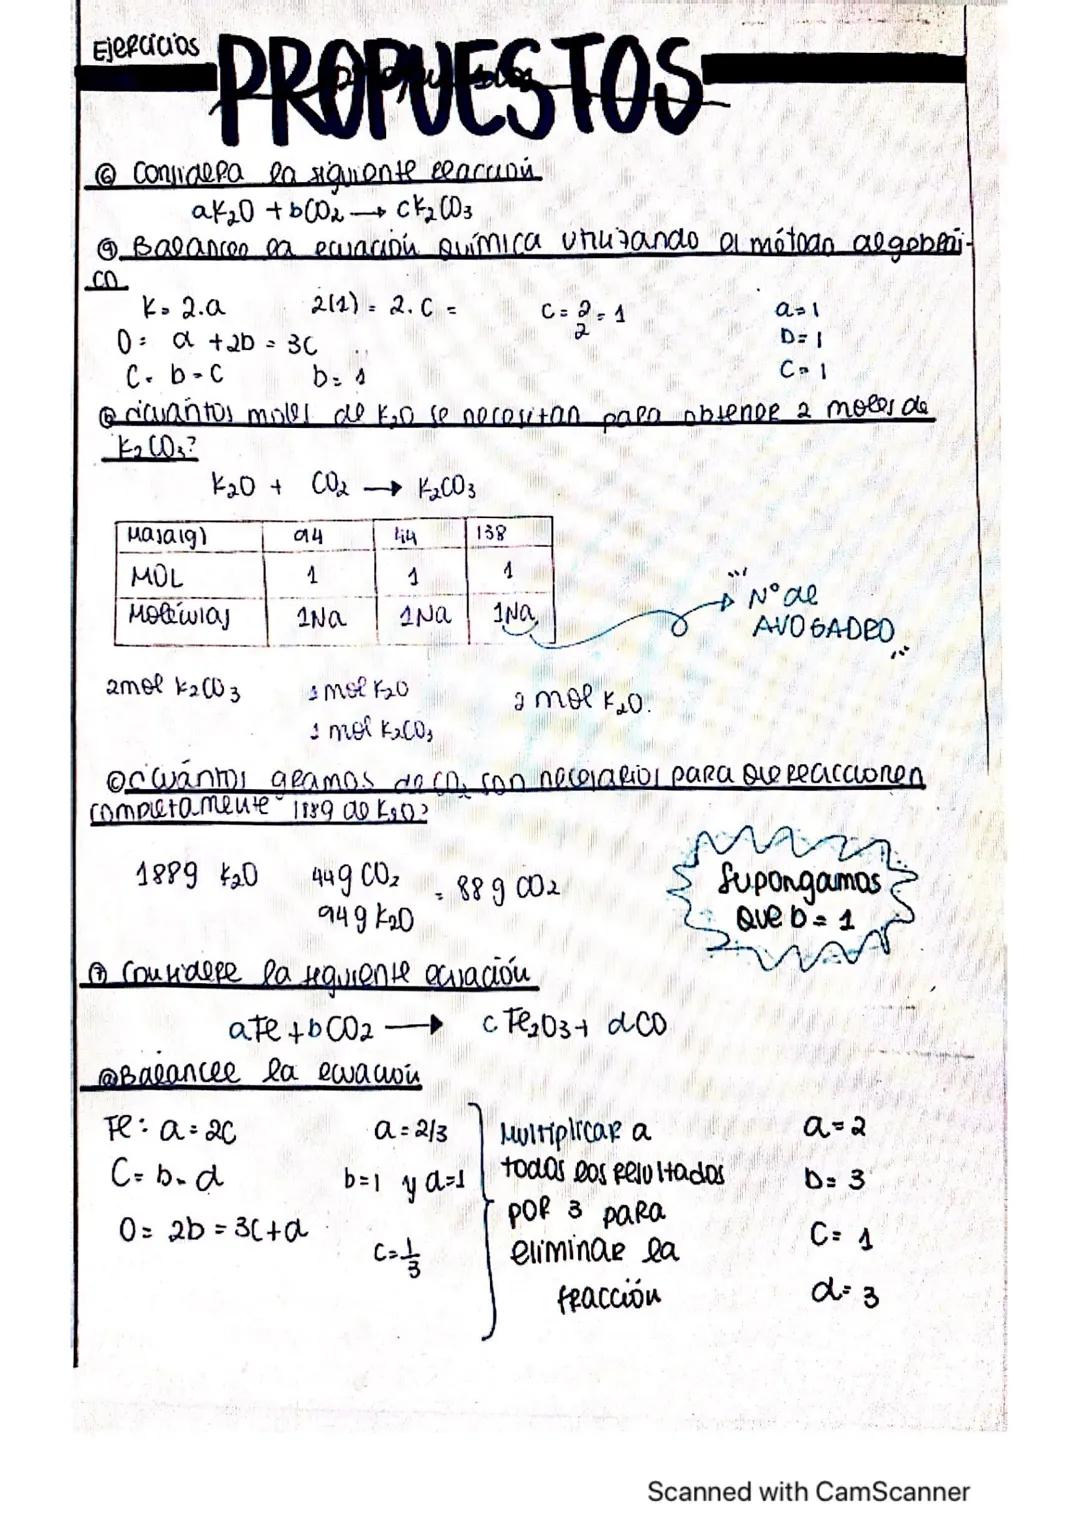 Ejercicios
PROPUESTOS
⑥ Considera la siguiente reacción
aK₂O + bCO₂ → cK₂CO₃
ⓐ Balancee la ecuación química utilizando el método algebrái-
co
K = 2.a 2(1) = 2.C = C = 2/2 = 1 a=1
O: a + 2b = 3C b=1
C = b = C b = 1 C = 1
ⓑ ¿Cuántos moles de K₂O se necesitan para obtener 2 moles de
K₂CO₃?
K₂O + CO₂ → K₂CO₃
Masa(g) 94 44 138
MOL 1 1 1
Moléculas 1Na 1Na 1Na
N° de
AVOGADRO
2mol K₂CO₃ 1 mol K₂O 2 mol K₂O.
1 mol K₂CO₃
ⓒ ¿Cuántos gramos de CO₂ son necesarios para que reaccionen
completamente 188g de K₂O?
188g K₂O 44g CO₂ = 88 g CO₂
94g K₂O
Supongamos
que b = 1
⑦ Considere la siguiente ecuación
aFe + bCO₂ → cFe₂O₃ + dCO
ⓐ Balancee la ecuación
Fe: a = 2C a = 2/3 Multiplicar a a=2
C = b = d b=1 y d=1 todos los resultados b= 3
O = 2b = 3C+d por 3 para C= 1
C=1/3 eliminar la d= 3
fracción
Scanned with CamScanner